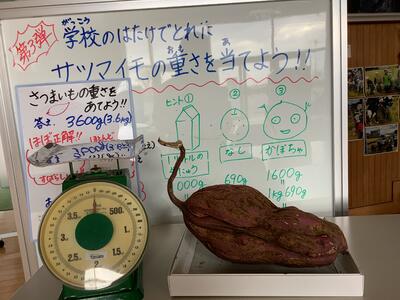 第3弾
がっこう
学校のはたけでとれた
おも あ
サツマイモの重さを当てよう!!
さつまいもの重さを
あてよう!!
答え 3600g(3.6kg)
ほぼ正解!!
ヒント①
②
③
なし
かぼちゃ
1リットルの
000g
690g
1600g
1kg690g
500
3.5
3
2.5
2
1.5
1